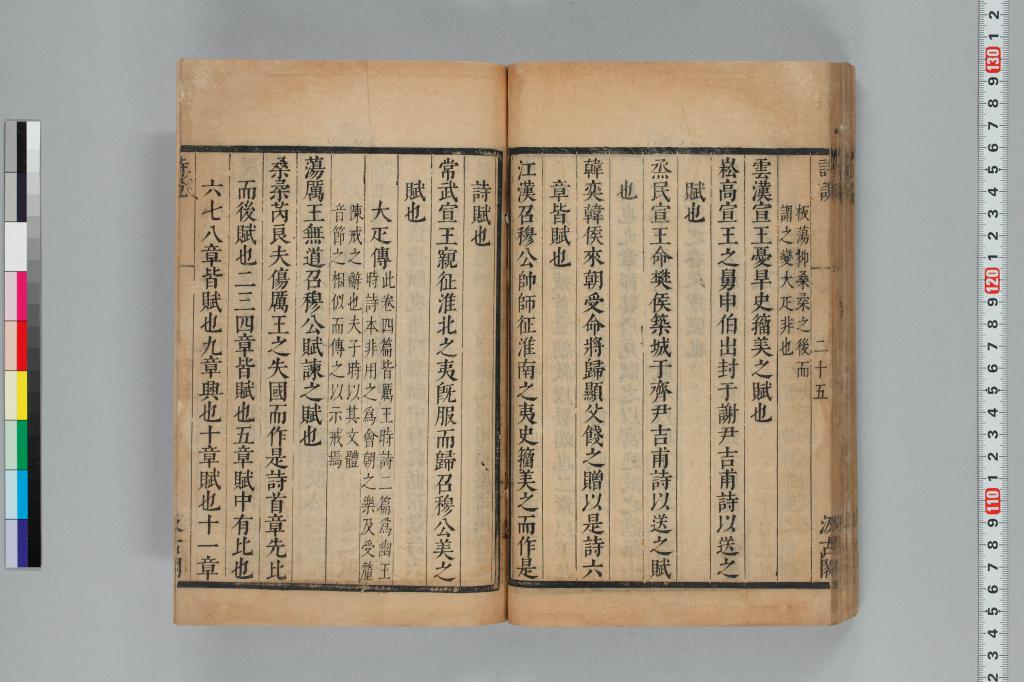 詩說
二十五
汲古閣
板蕩抑桑柔之後而
謂之變大疋非也
雲漢宣王憂旱史籀美之賦也
崧高宣王之舅申伯出封于謝尹吉甫詩以送之
賦也
烝民宣王命樊侯築城于齊尹吉甫詩以送之賦
也
韓奕韓侯來朝受命將歸顯父餞之贈以是詩六
章皆賦也
江漢召穆公帥師征淮南之夷史籀美之而作是
詩賦也
常武宣王親征淮北之夷旣服而歸召穆公美之
賦也
大疋傳
此卷四篇皆厲王時詩二篇爲幽王
時詩本非用之爲會朝之樂及受釐
陳戒之辭也夫子時以其文體
音節之相似而傳之以示戒焉
蕩厲王無道召穆公賦諫之賦也
桑柔芮良夫傷厲王之失國而作是詩首章先比
而後賦也二三四章皆賦也五章賦中有比也
六七八章皆賦也九章興也十章賦也十一章